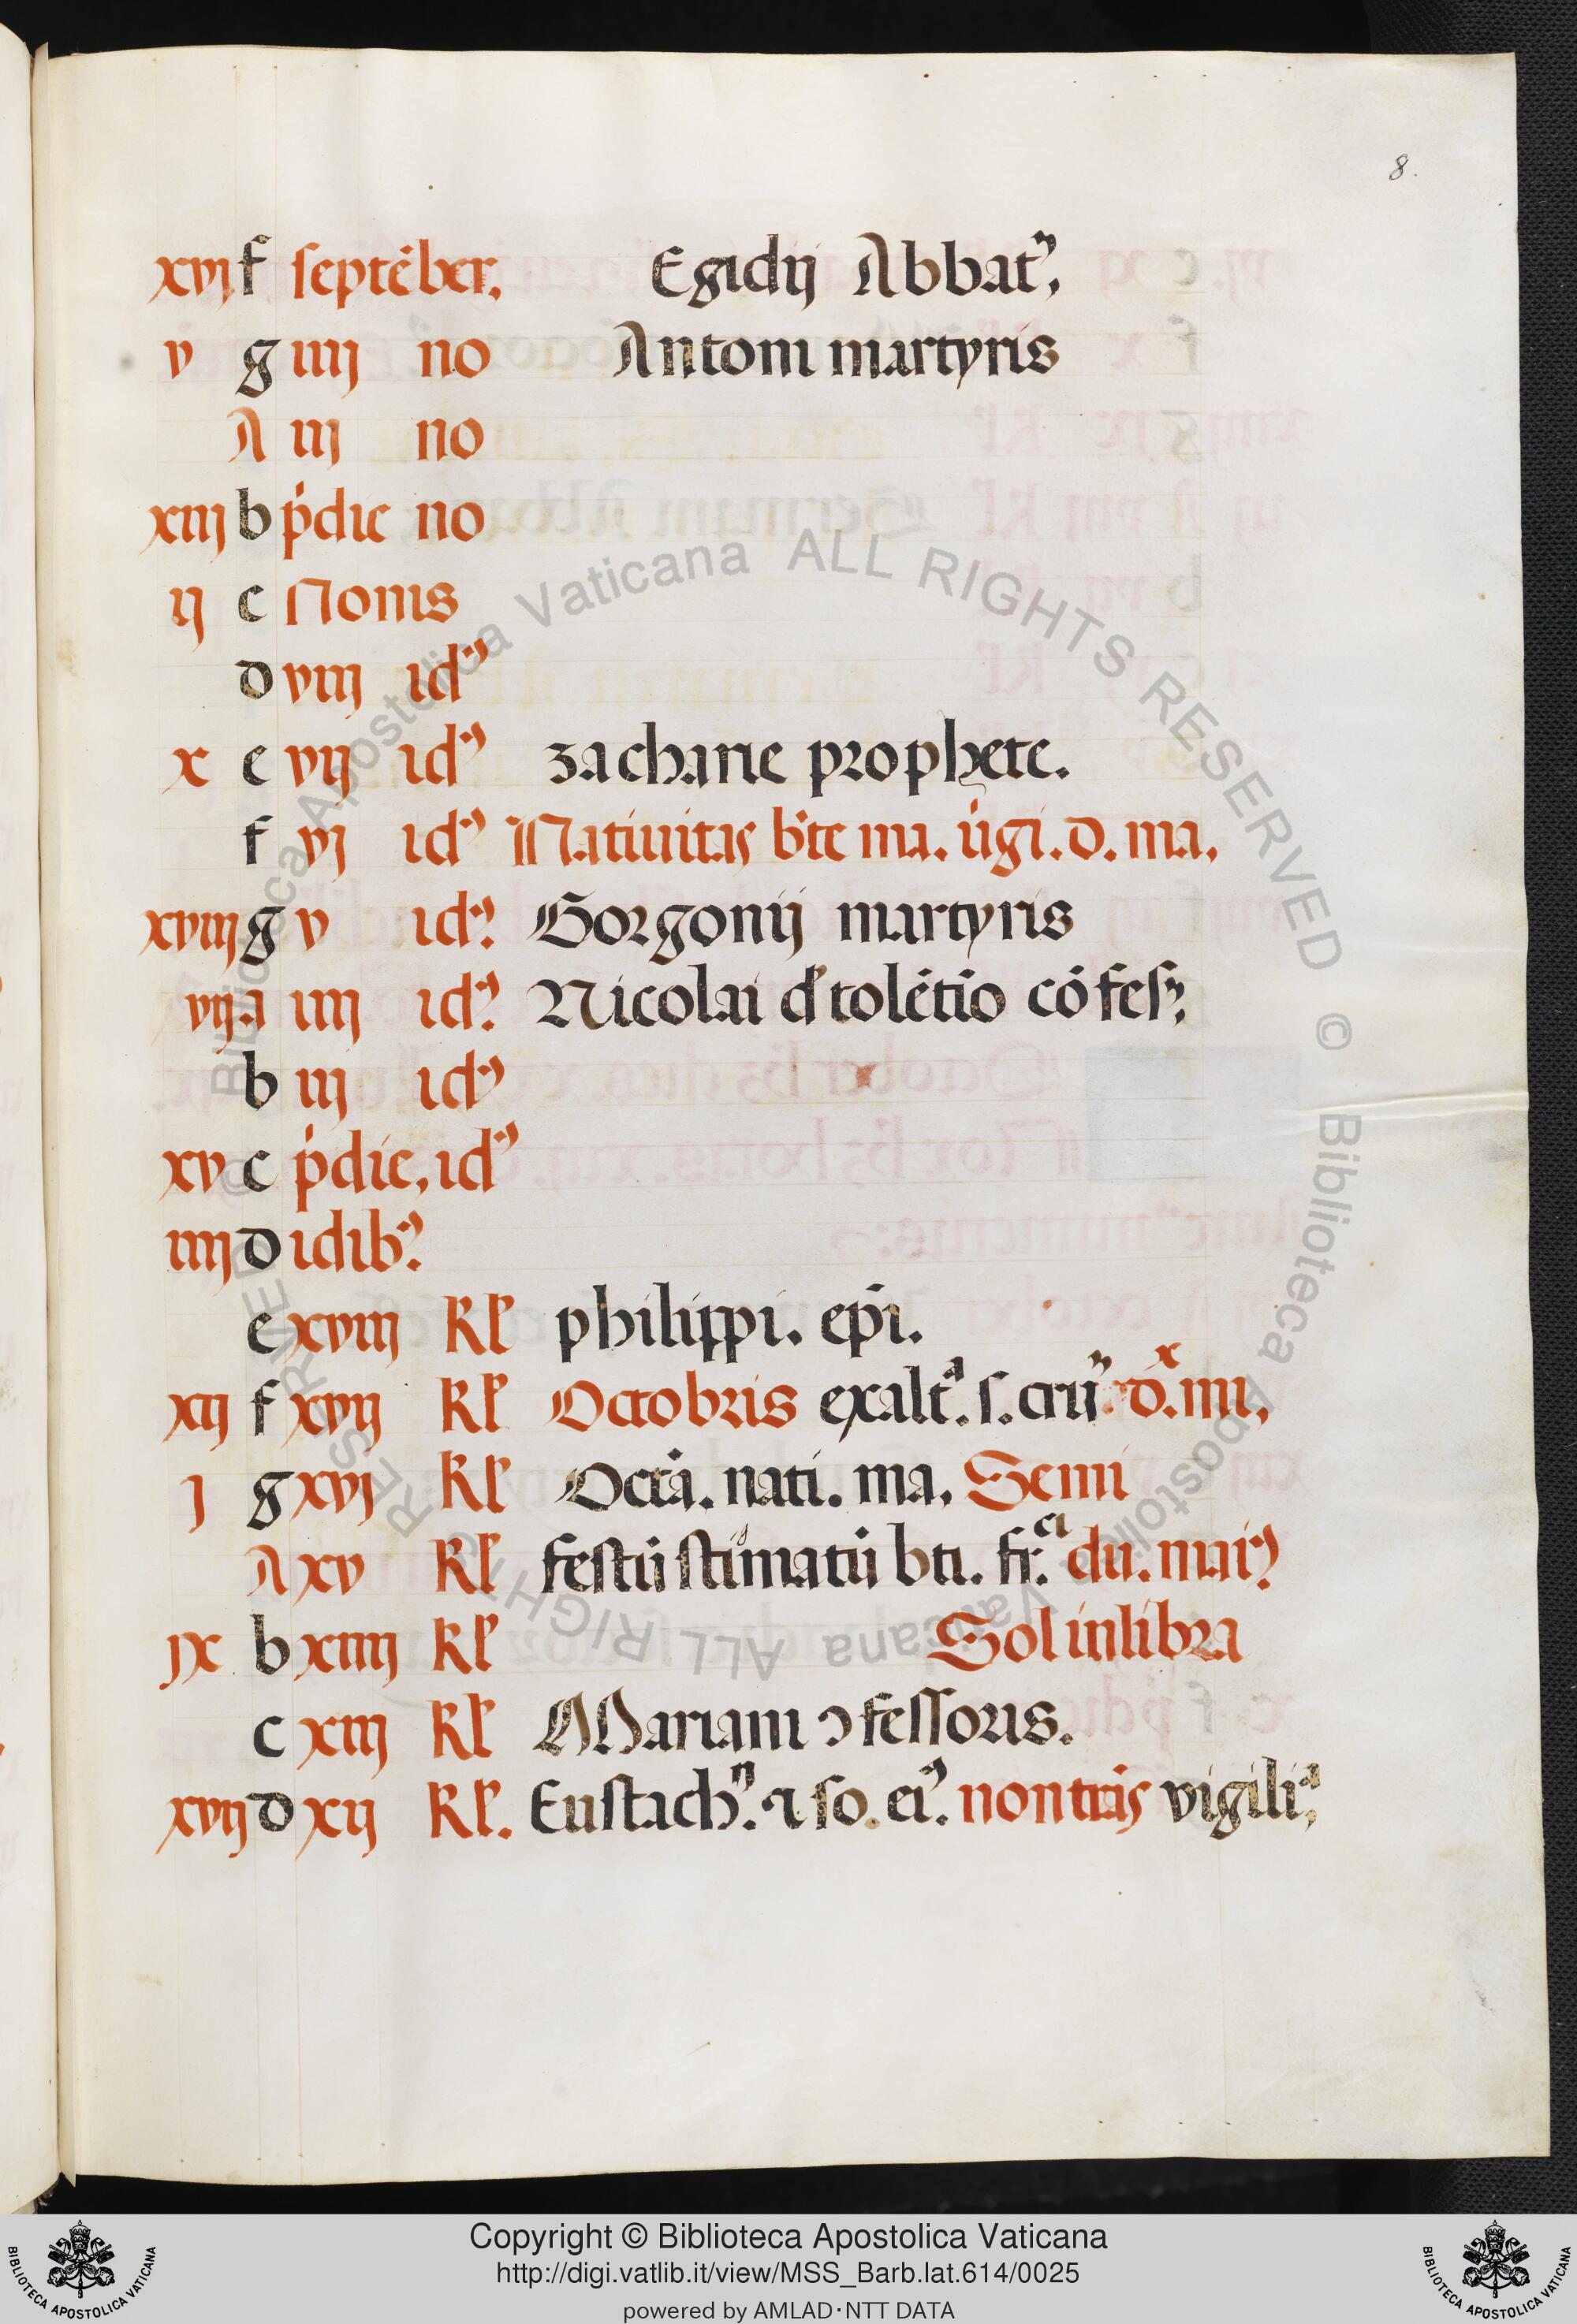 8.
xvj f septēber. Egidij Abbatꝰ,
v g iiij no Antonii martyris
A iij no
xiij b pͥdie no
ij c Nonis
d viij idꝰ
x e vij idꝰ zacharie prophete.
f vj idꝰ Natiuitas bͥte ma. uͥgi. d. ma.
xviij g v idꝰ. Gorgonij martyris
vij a iiij idꝰ. Nicolai đ tolētīo cōfesꝰ,
b iij idꝰ
xv c pͥdie, idꝰ
iiij d idibꝰ.
e xviij kl philippi. ep̄i.
xij f xvij kl Octobris exaltͣ. s. cruꝰ d. mi,
j g xvj kl Octā. nati. ma, Semi
A xv kl festū stimatū bti. fr. du. maiꝰ
ix b xiiij kl Sol in libra
c xiij kl Mariani ꝯfessoris.
xvij d xij kl. Eustachꝰ. ⁊ so. eiꝰ. non trās vigiliͣ,
Copyright © Biblioteca Apostolica Vaticana
http://digi.vatlib.it/view/MSS_Barb.lat.614/0025
powered by AMLAD·NTT DATA
BIBLIOTECA APOSTOLICA VATICANA
BIBLIOTECA APOSTOLICA VATICANA
© Biblioteca Apostolica Vaticana ALL RIGHTS RESERVED © Biblioteca Apostolica Vaticana ALL RIGHTS RESERVED